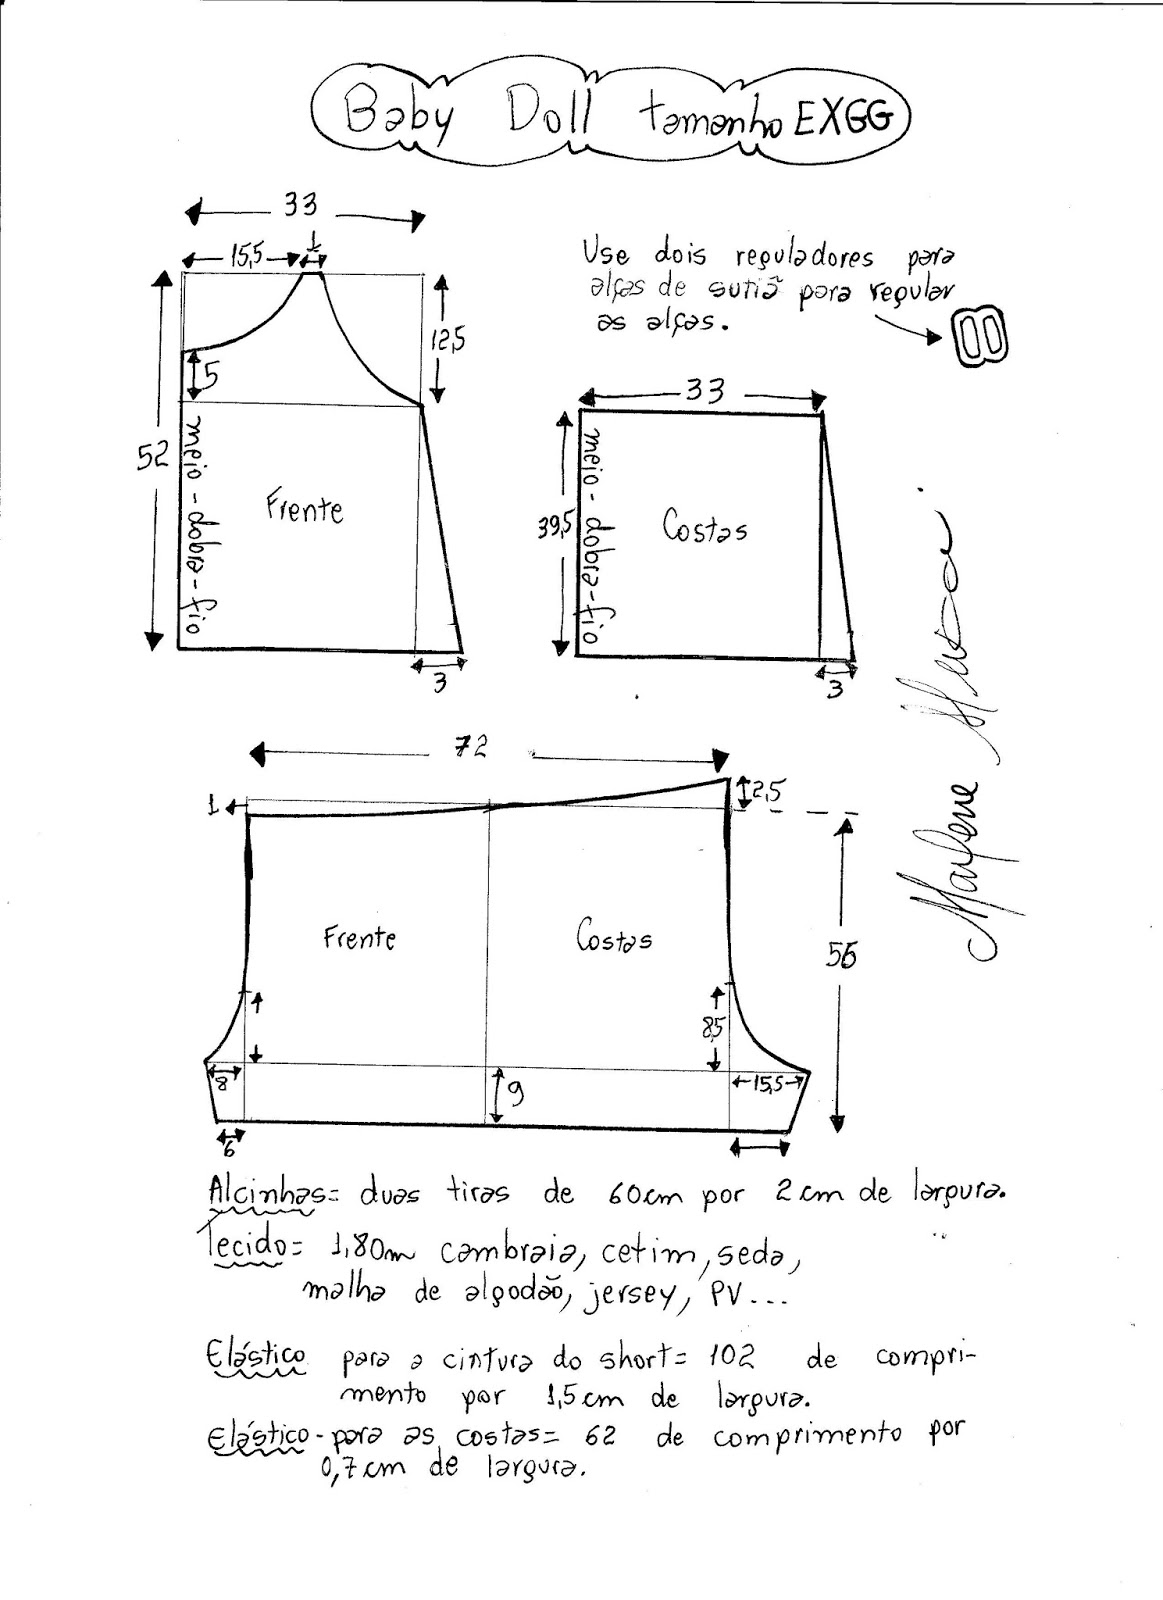 Baby Doll tamanho EXGG
33
15,5
1
Use dois reguladores para
alças de sutiã para regular
as alças.
12,5
5
52
meio-dobra-fio
Frente
3
33
39,5
meio-dobra-fio
Costas
3
Marlene Mukai
72
1
2,5
Frente
Costas
56
8,5
8
9
15,5
6
Alcinhas= duas tiras de 60cm por 2cm de largura.
Tecido= 1,80m cambraia, cetim, seda,
malha de algodão, jersey, PV...
Elástico para a cintura do short= 102 de compri-
mento por 1,5cm de largura.
Elástico-para as costas= 62 de comprimento por
0,7cm de largura.